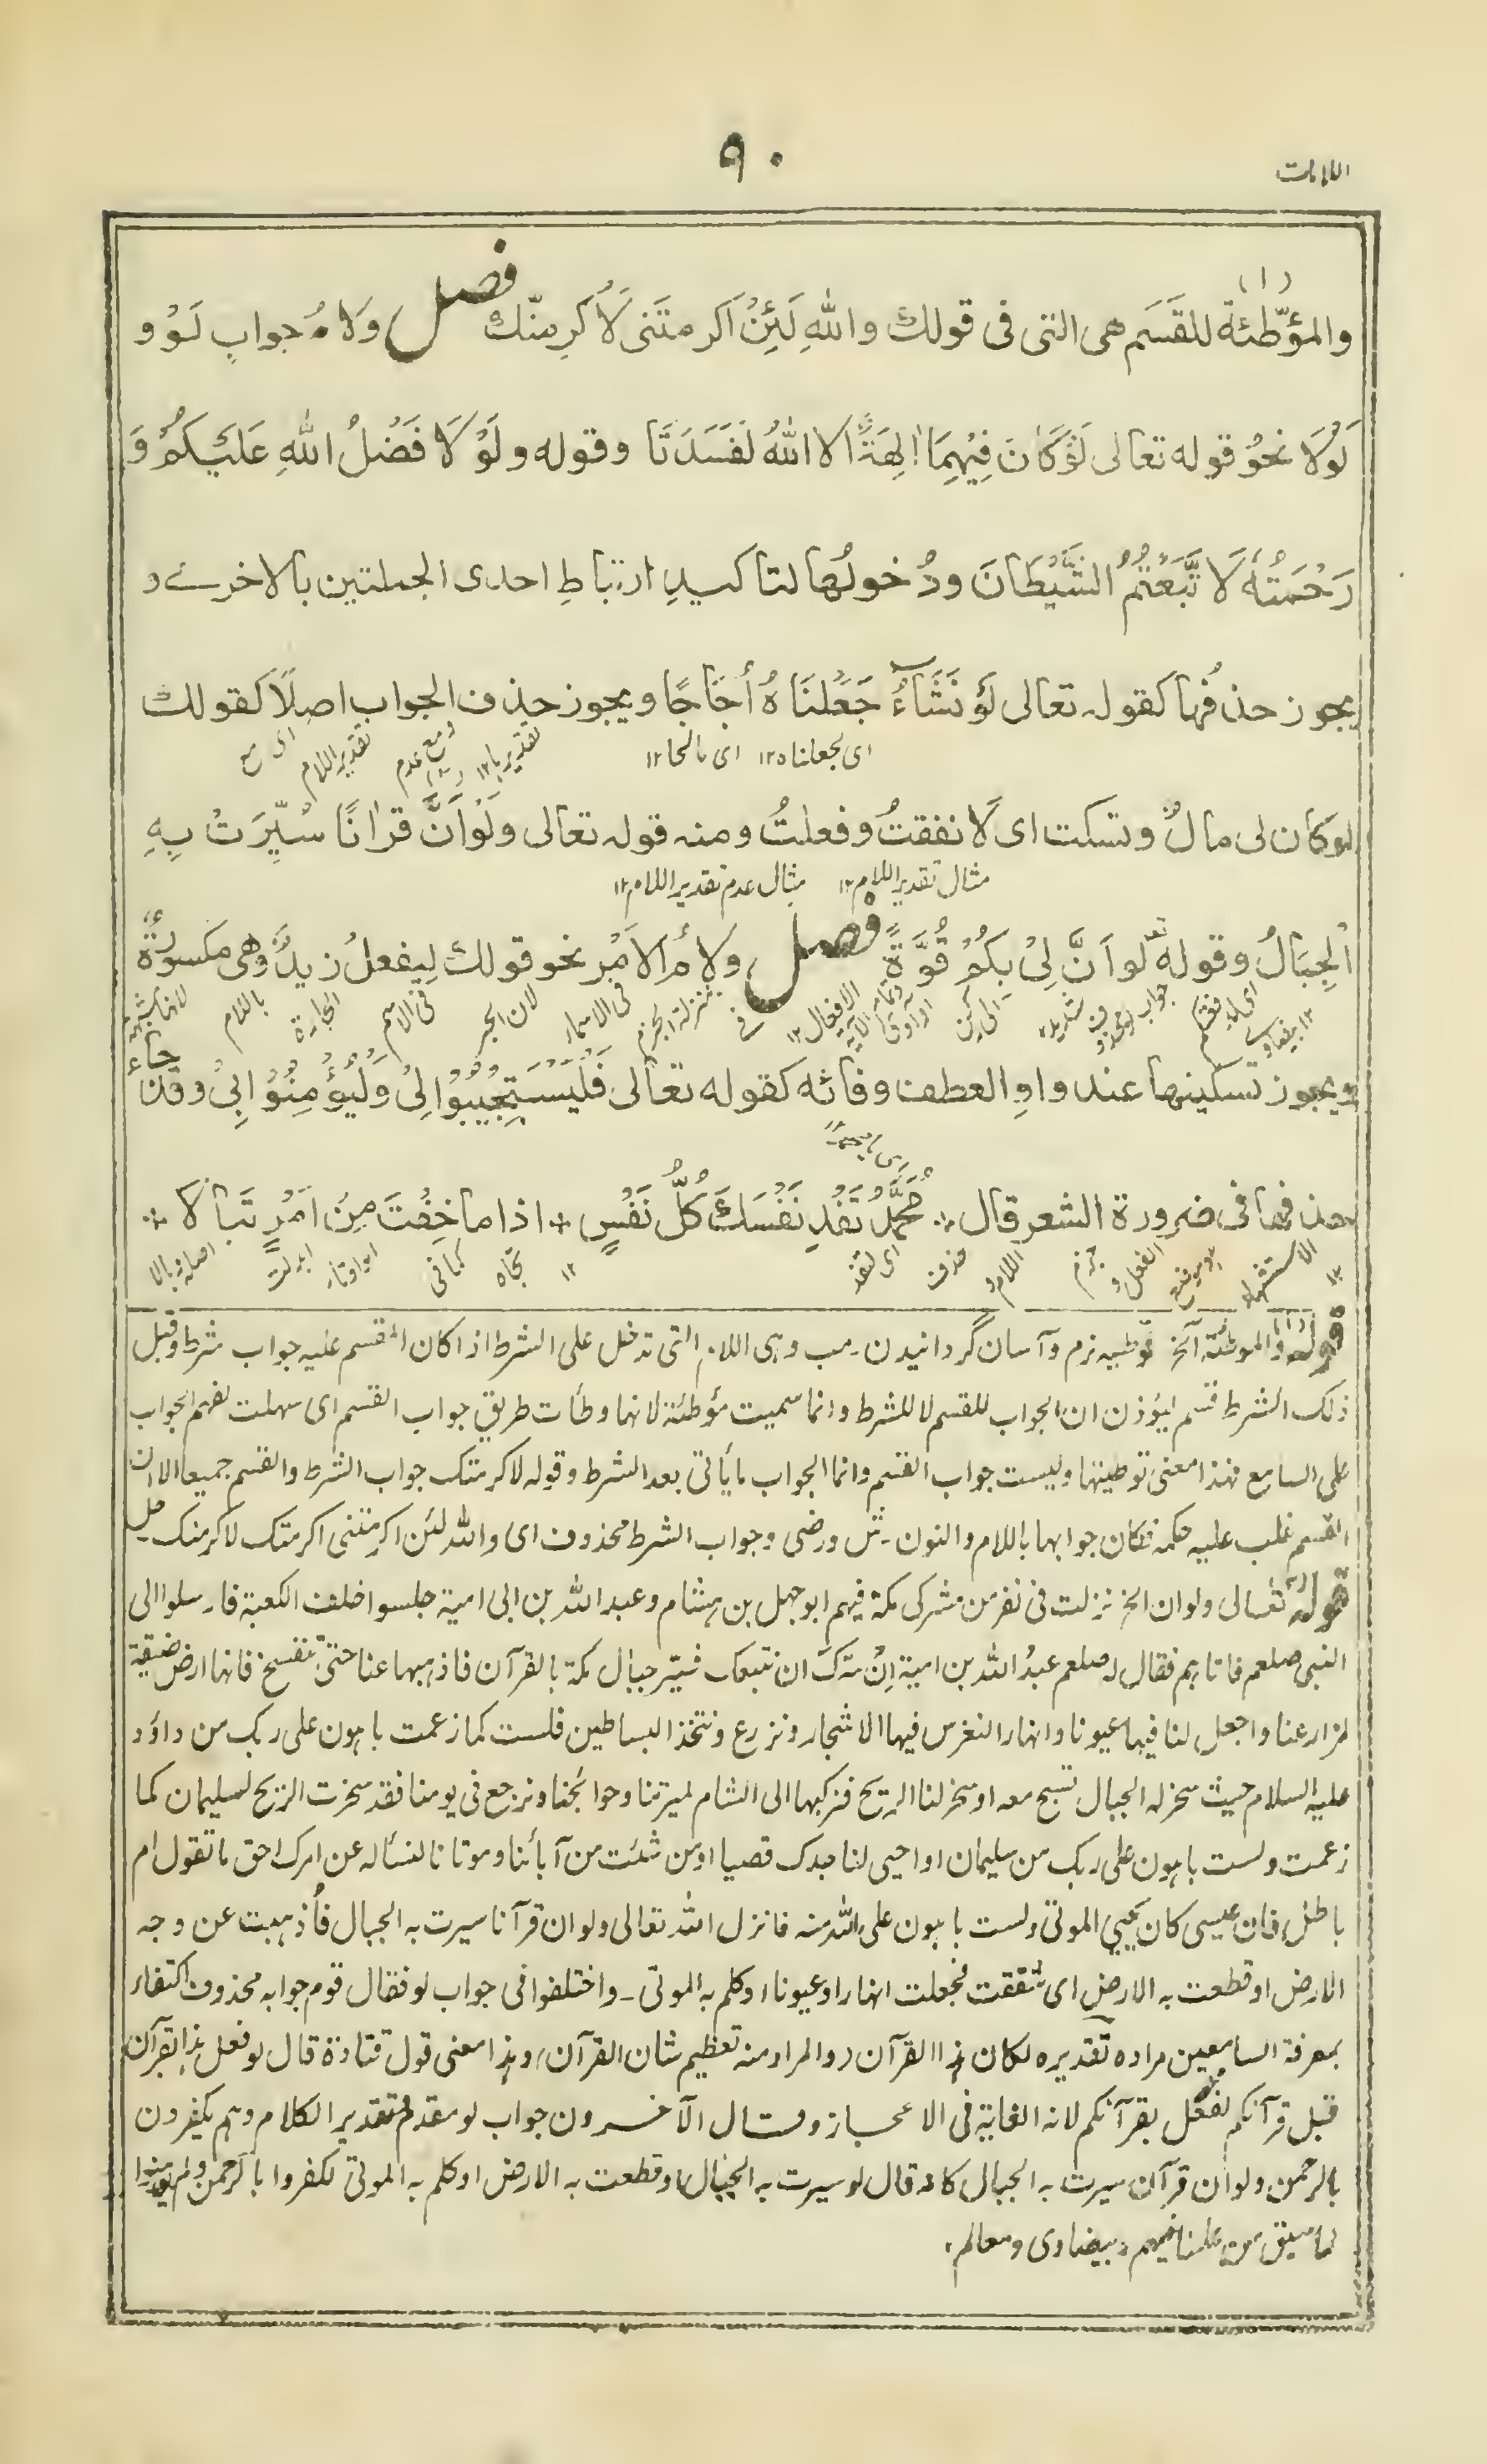 اللامات
٩٠
(١)
والمؤطّئة للقَسَم هى التى فى قولك واللهِ لَئِنْ اَكرمتَنى لَاُكرِمنّك فصل ولامُ جوابِ لَوْ و
لَوْلَا نحوُ قوله تعالى لَوْ كَانَ فِيْهِمَا اٰلِهَةٌ الا اللهُ لَفَسَدَتَا وقوله ولَوْ لَا فَضْلُ اللهِ عَلَيْكُمْ وَ
رَحْمَتُهٗ لَا تَّبَعْتُمُ الشَّيْطَانَ ودُخولُها لتاكيدِ ارتباطِ احدى الجملتين بالاخرے و
يجوز حذفُها كقوله تعالى لَوْ نَشَآءُ جَعَلْنَاهُ اُجَاجًا ويجوز حذف الجواب اصلًا كقولك
اى لجعلناه ١٢ اى مالحا ١٢
لو كان لى مالٌ وتسكت اى لَانفقتُ وفعلتُ ومنه قوله تعالى ولَوْ اَنَّ قراٰنًا سُيِّرَتْ بِهِ
مثال تقدير اللام ١٢ مثال عدم تقدير اللام ١٢
الْجِبَالُ وقوله تعـ لو اَنَّ لِىْ بِكُمْ قُوَّةً فصل ولامُ الاَمْر نحو قولك لِيفعلْ زيدٌ وهى مكسورةٌ
ويجوز تسكينها عند واوِ العطف وفائه كقوله تعالى فَلْيَسْتَجِيْبُوْا لِىْ وَلْيُؤْمِنُوْا بِىْ وقد جاء
حذفها فى ضرورة الشعر قال ؞ مُحَمَّدُ تَفْدِ نَفْسَكَ كُلُّ نَفْسٍ ؞ اذا ما خِفْتَ مِنْ اَمْرٍ تَبَالَا ؞
قوله والموطئة آلخ توطيه نرم وآسان گردانيدن ـ مب وہى اللام التى تدخل على الشرط اذا كان المقسم عليه جواب شرط وقبل
ذلك الشرط قسم ليؤذن ان الجواب للقسم لا للشرط وانما سميت مؤطئة لانها وطأت طريق جواب القسم اى سهلت لفهم الجواب
على السامع فهذا معنى توطيتها وليست جواب القسم وانما الجواب ما يأتى بعد الشرط وقوله لاكرمتك جواب الشرط والقسم جميعا الا ان
القسم غلب عليه حكمه فكان جوابها باللام والنون ـ ش ورضى وجواب الشرط محذوف اى والله لئن اكرمتنى اكرمتك لاكرمنك ـ
قوله تعالى ولو ان الخ نزلت فى نفر من مشركى مكة فيهم ابو جهل بن هشام وعبد الله بن ابى امية جلسوا خلف الكعبة فارسلوا الى
النبى صلعم فاتاهم فقال له صلعم عبدُ الله بن امية اِنْ سَرَّك ان نتبعك فسَيّر جبال مكة بالقرآن فاذهبها عنا حتى تنفسح فانها ارض ضيقة
لمزارعنا واجعل لنا فيها عيونا وانهارا لنغرس فيها الاشجار ونزرع ونتخذ البساطين فلست كما زعمت باهون على ربك من داؤد
عليه السلام حيث سخر له الجبال تسبح معه او سخر لنا الريح فنركبها الى الشام لميرتنا وحوائجنا ونرجع فى يومنا فقد سخرت الريح لسليمان كما
زعمت ولست باهون على ربك من سليمان او احيى لنا جدك قصيا او من شئت من آبائنا وموتانا لنسأله عن امرك احق ما تقول ام
باطل فان عيسى كان يحيى الموتى ولست باهون على الله منه فانزل الله تعالى ولو ان قرآنا سيرت به الجبال فأذهبت عن وجه
الارض او قطعت به الارض اى شققت فجعلت انهارا وعيونا او كلم به الموتى ـ واختلفوا فى جواب لو فقال قوم جوابه محذوف اكتفاء
بمعرفة السامعين مراده تقديره لكان هذا القرآن والمراد منه تعظيم شان القرآن وهذا معنى قول قتادة قال لو فعل هذا بقرآن
قبل قرآنكم لفعل بقرآنكم لانه الغاية فى الاعجاز وقال الآخرون جواب لو مقدم وتقدير الكلام وهم يكفرون
بالرحمن ولو ان قرآن سيرت به الجبال كانه قال لو سيرت به الجبال او قطعت به الارض او كلم به الموتى لكفروا بالرحمن ولم يؤمنوا
لما سبق من علمنا فيهم ، بيضاوى ومعالم ،